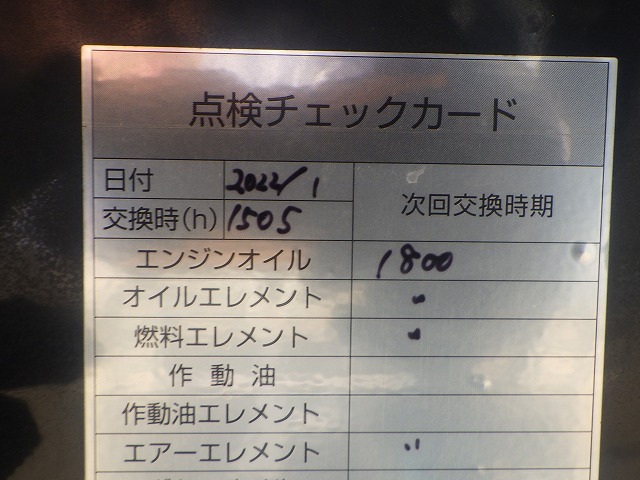 点検チェックカード
日付 2022/1
交換時(h) 1505 次回交換時期
エンジンオイル 1800
オイルエレメント 〃
燃料エレメント 〃
作動油
作動油エレメント
エアーエレメント 〃